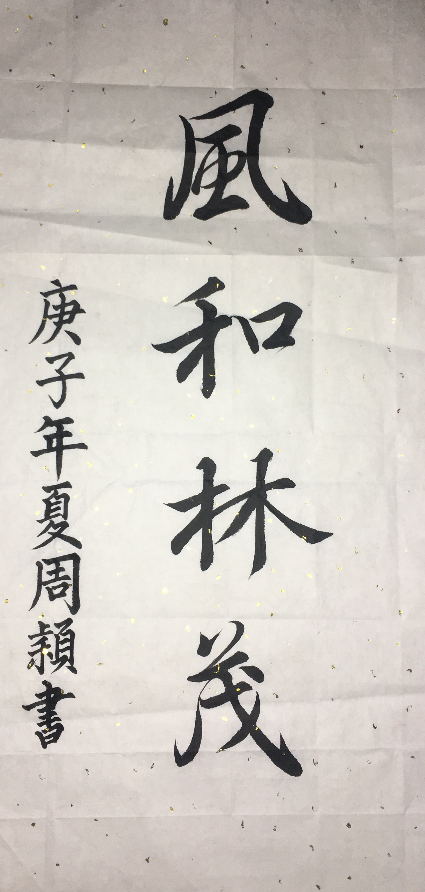 風和林茂
庚子年夏周穎書